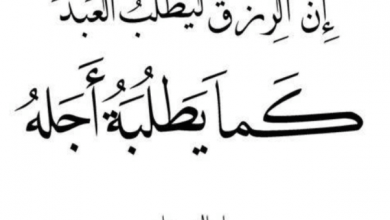 إِنَّ الرِّزْقَ لَيَطْلُبُ العَبْدَ
كَمَا يَطْلُبُهُ أَجَلُهُ